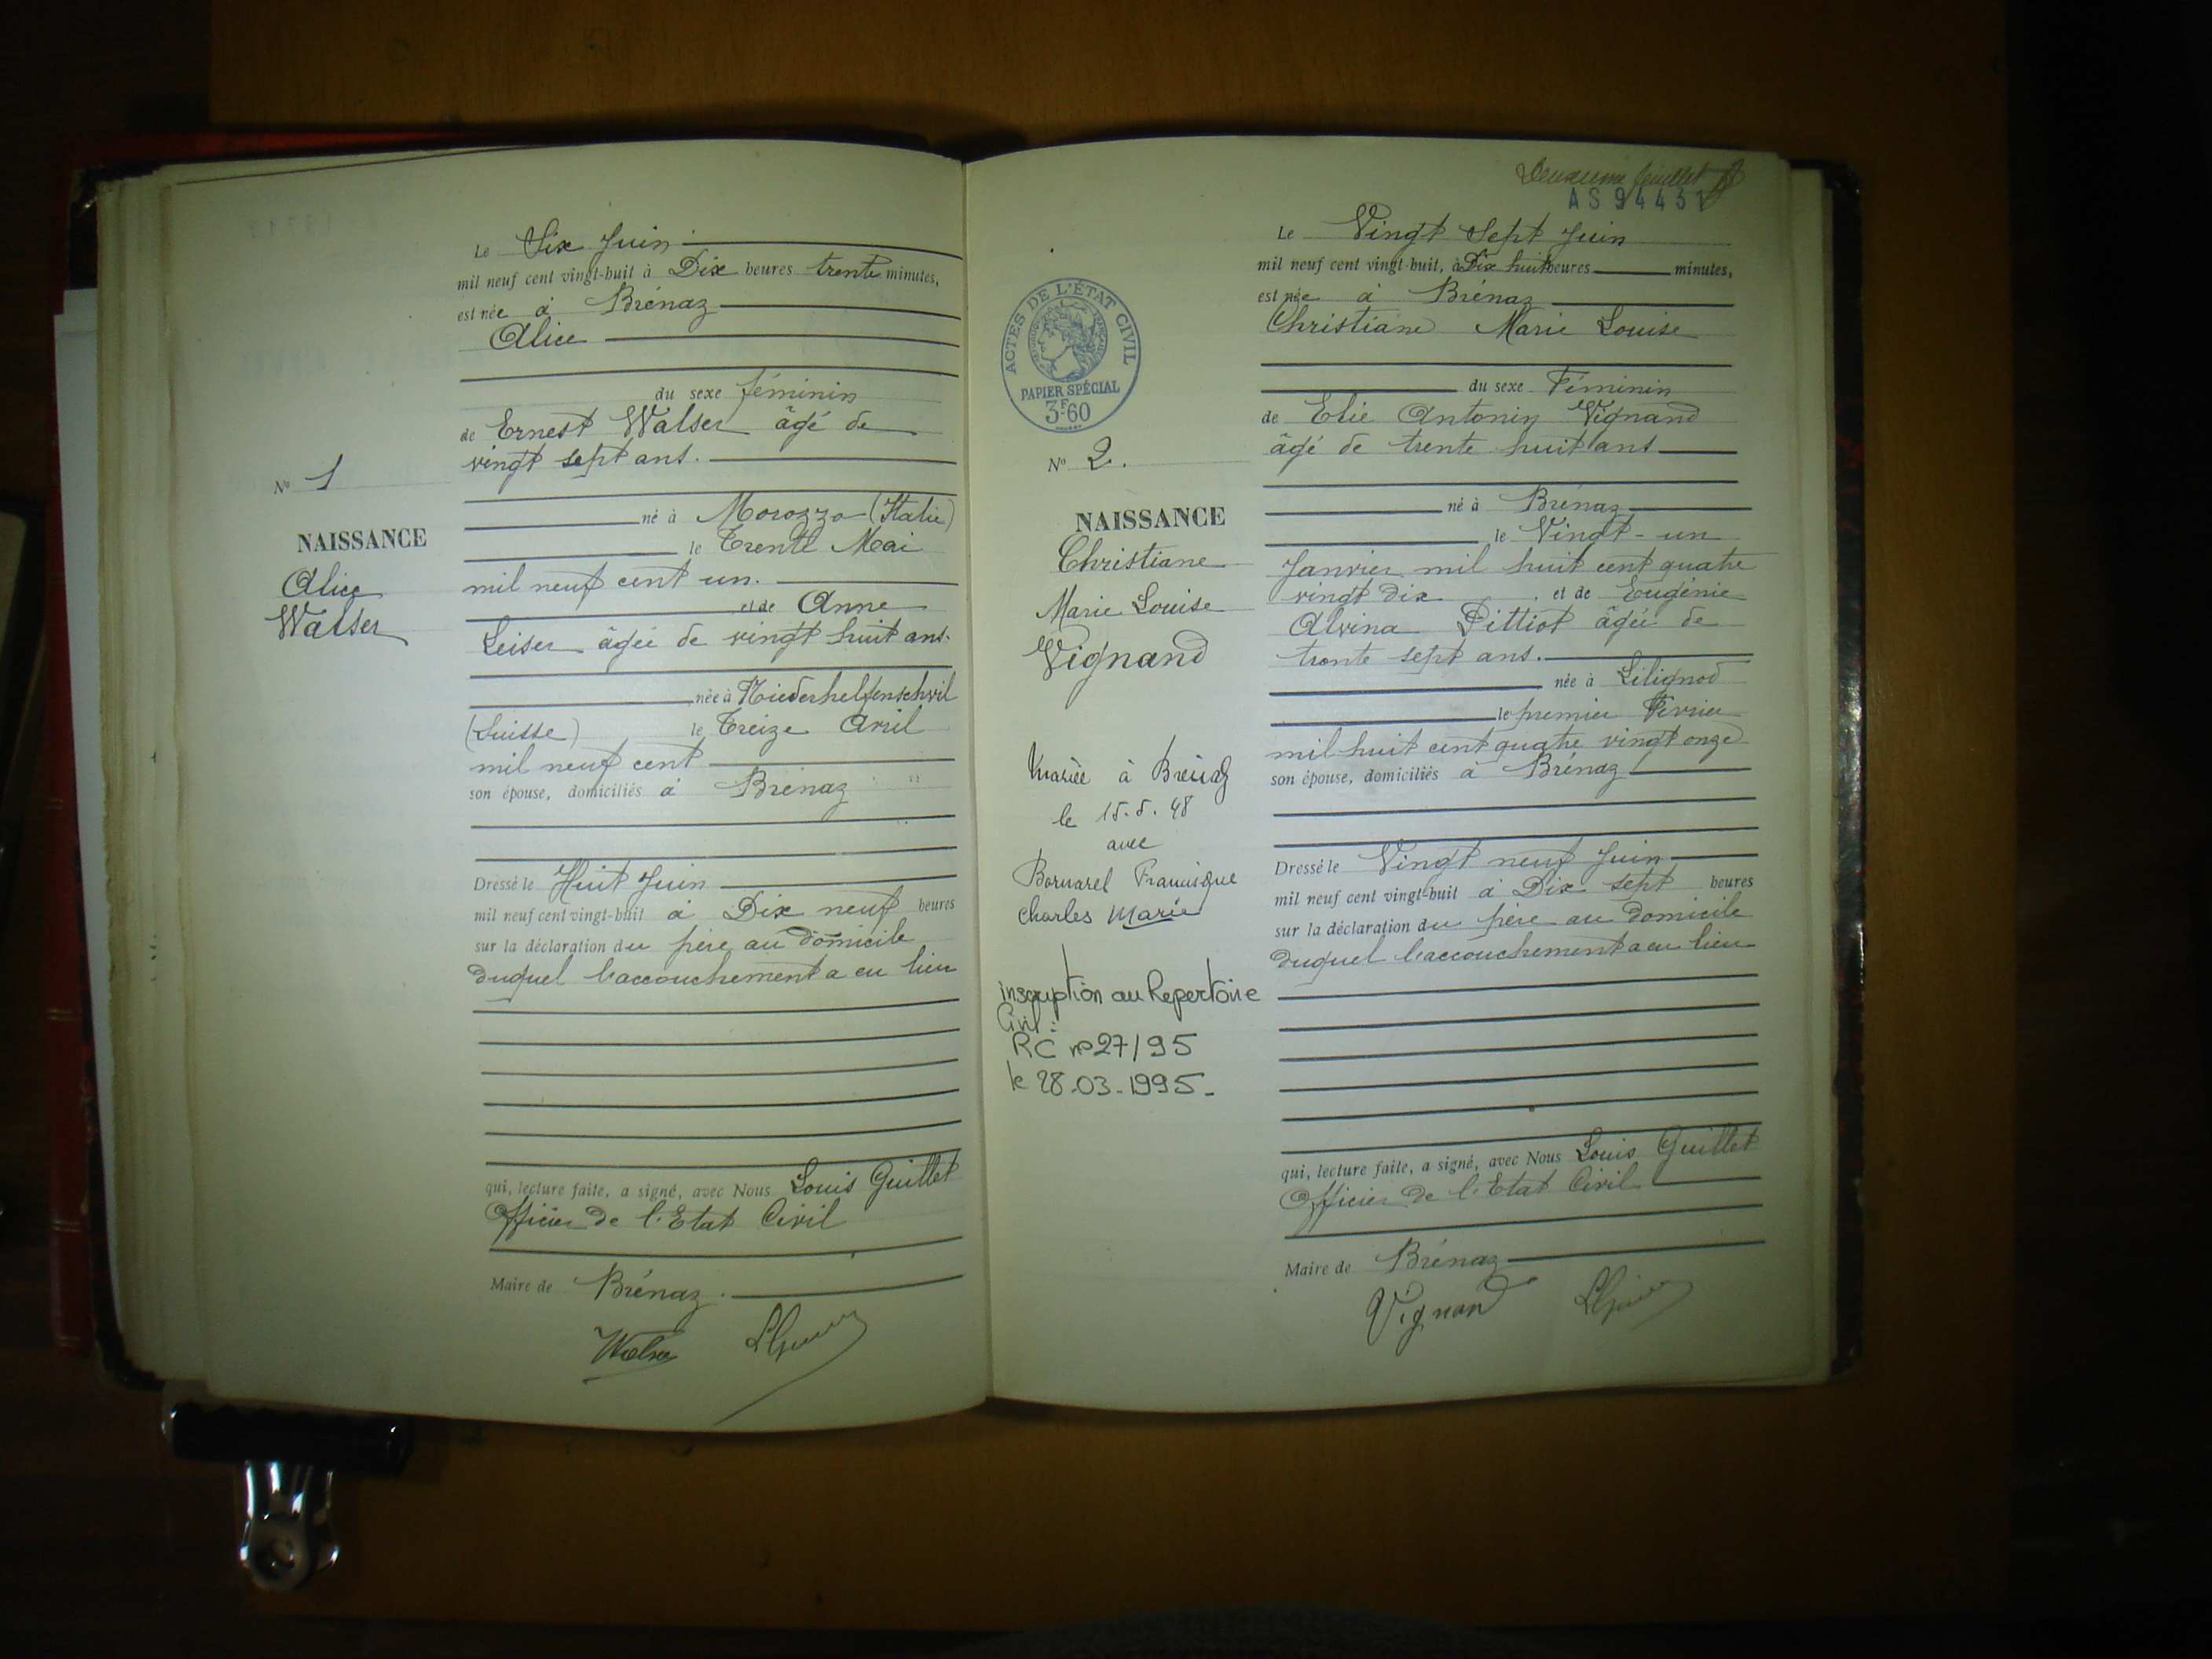 Le Six Juin
mil neuf cent vingt-huit à Dix heures trente minutes,
est née à Brénaz
Alice
du sexe féminin
de Ernest Walser âgé de
vingt sept ans.
né à Morozzo (Italie)
le Trente Mai
mil neuf cent un.
et de Anne
Leiser âgée de vingt huit ans.
née à Niederhelfenschwil
(Suisse) le Treize Avril
mil neuf cent
son épouse, domiciliés à Brénaz
Dressé le Huit Juin
mil neuf cent vingt-huit à Dix neuf heures
sur la déclaration du père au domicile
duquel l'accouchement a eu lieu
qui, lecture faite, a signé, avec Nous Louis Guillet
Officier de l'Etat Civil
Maire de Brénaz.
Walser
No 1
NAISSANCE
Alice
Walser
Deuxième feuillet
AS 94431
ACTES DE L'ÉTAT CIVIL
PAPIER SPÉCIAL
3F60
No 2.
NAISSANCE
Christiane
Marie Louise
Vignand
Mariée à Brénaz
le 15.5.48
avec
Bornarel Francisque
Charles Marie
inscription au Repertoire
Civil :
RC n°27/95
le 28.03.1995.
Le Vingt Sept Juin
mil neuf cent vingt-huit, à Dix huit heures minutes,
est née à Brénaz
Christiane Marie Louise
du sexe Féminin
de Elie Antonin Vignand
âgé de trente huit ans
né à Brénaz
le Vingt-un
Janvier mil huit cent quatre
vingt dix et de Eugénie
Alvina Pittiot âgée de
trente sept ans.
née à Lilignod
le premier Février
mil huit cent quatre vingt onze
son épouse, domiciliés à Brénaz
Dressé le Vingt neuf Juin
mil neuf cent vingt-huit à Dix sept heures
sur la déclaration du père au domicile
duquel l'accouchement a eu lieu
qui, lecture faite, a signé, avec Nous Louis Guillet
Officier de l'Etat Civil
Maire de Brénaz
Vignand